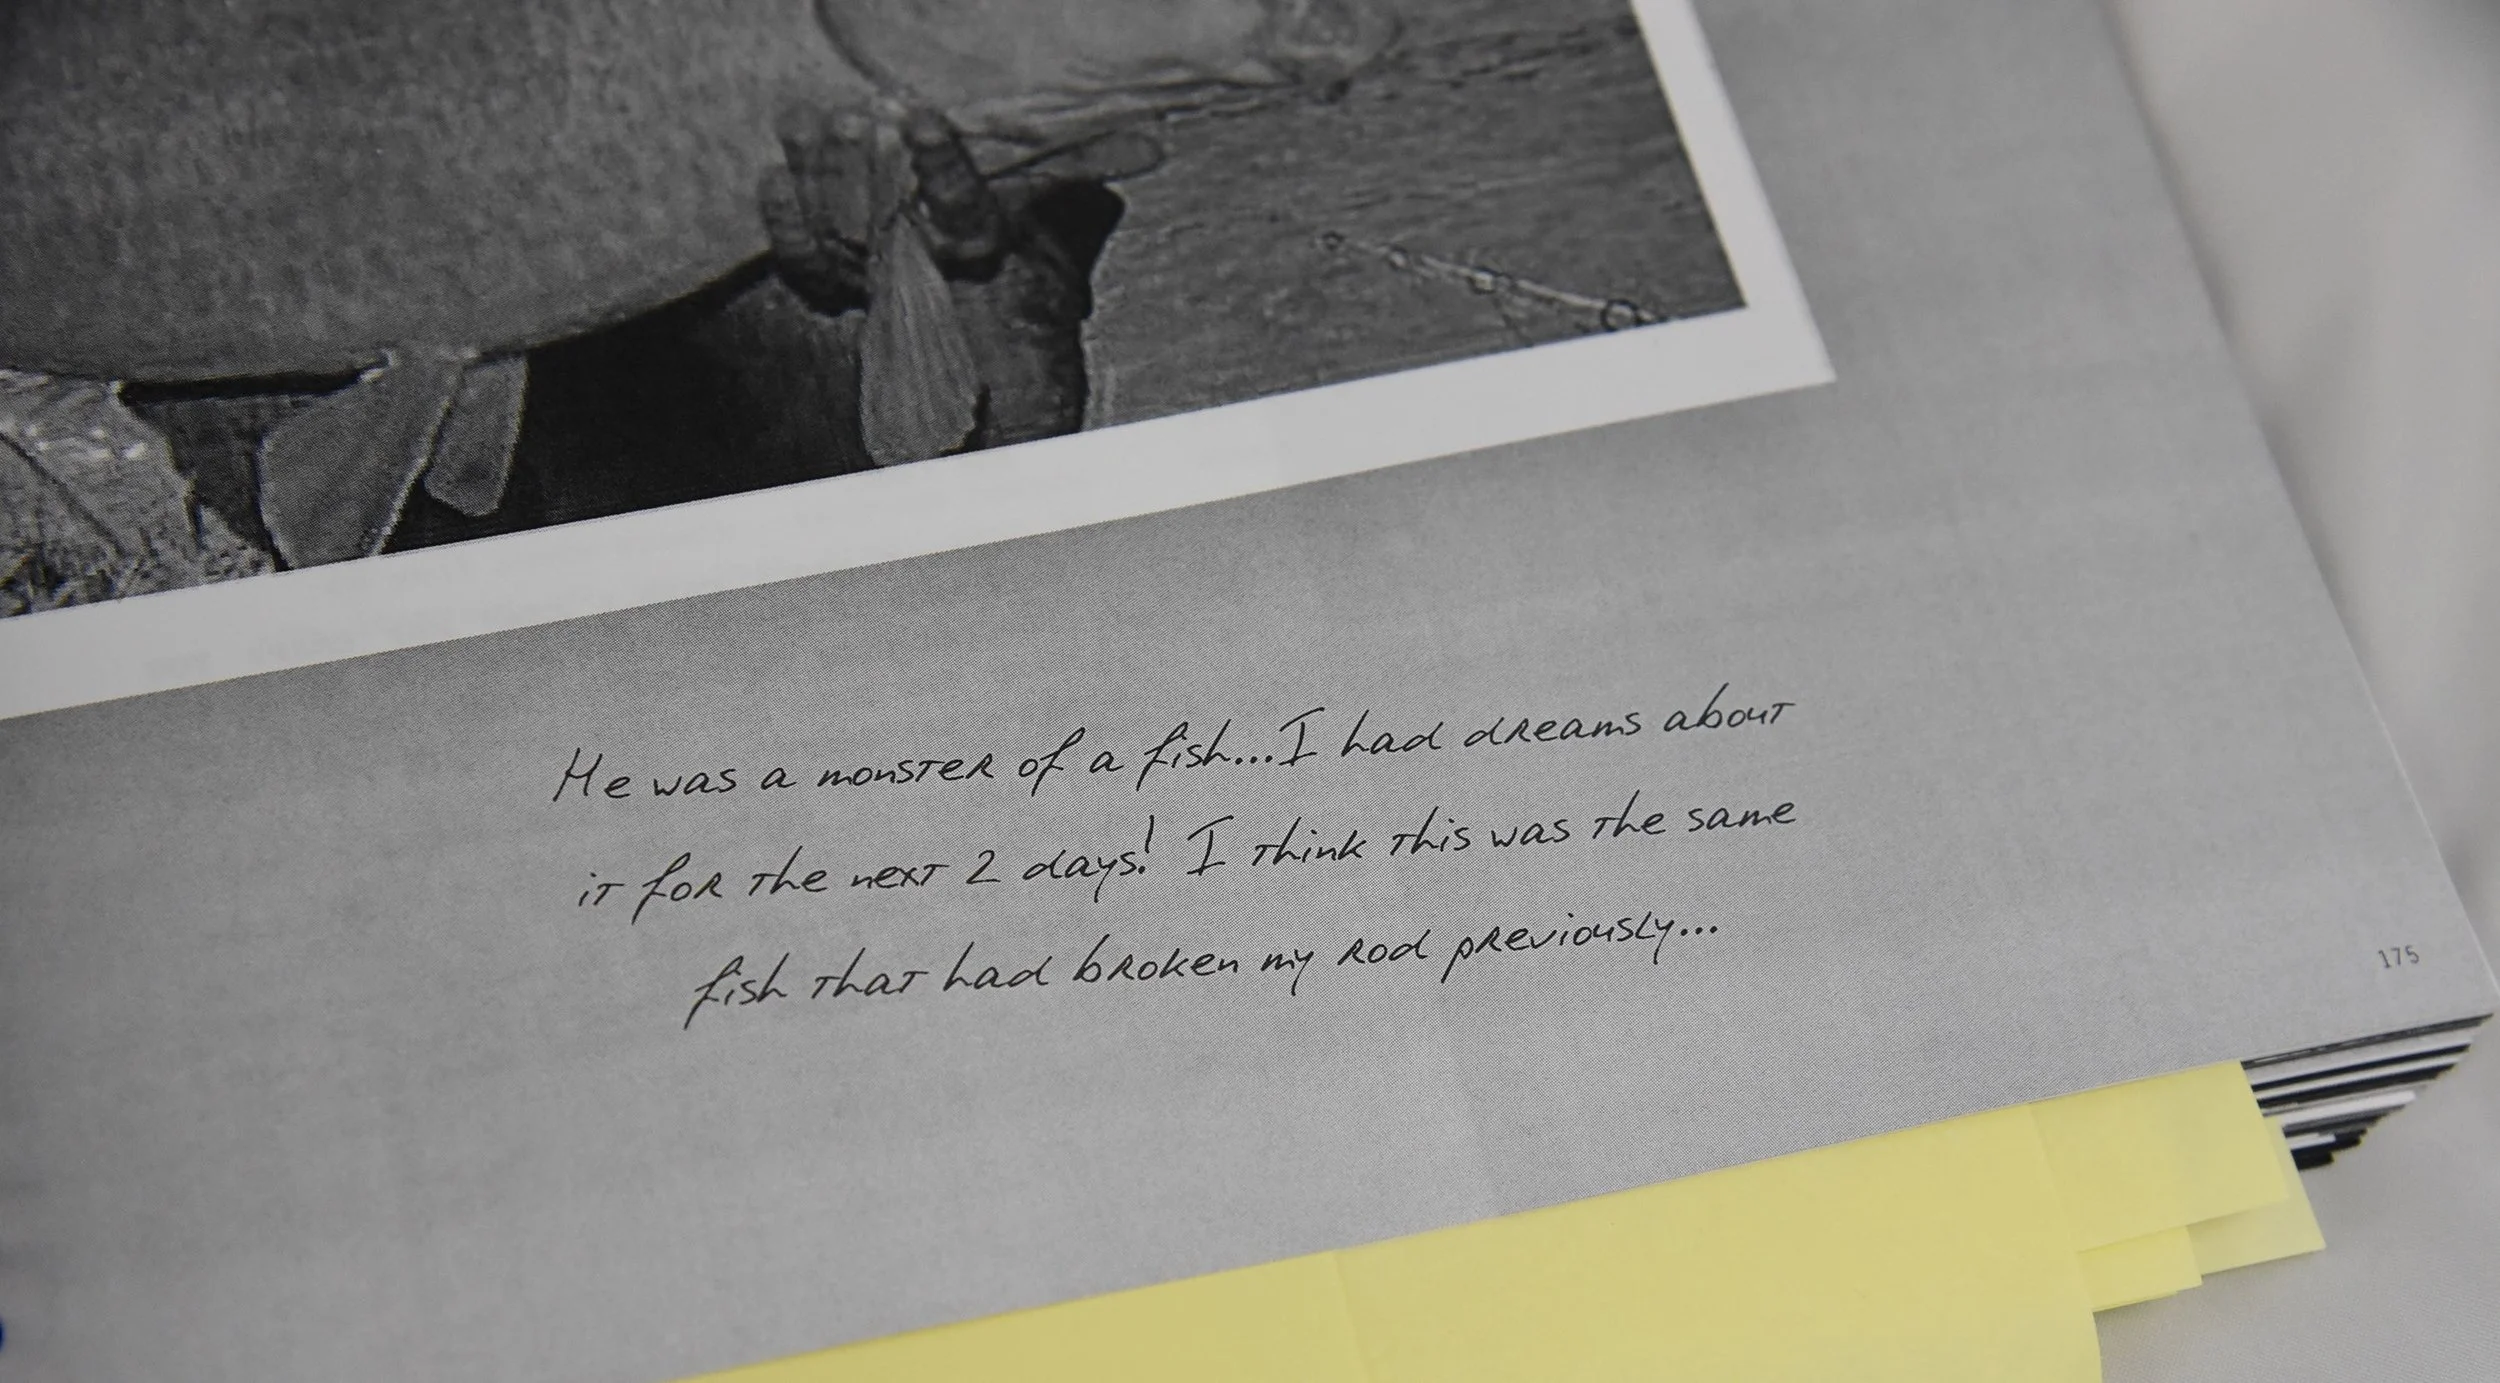 He was a monster of a fish...I had dreams about
it for the next 2 days! I think this was the same
fish that had broken my rod previously...
175